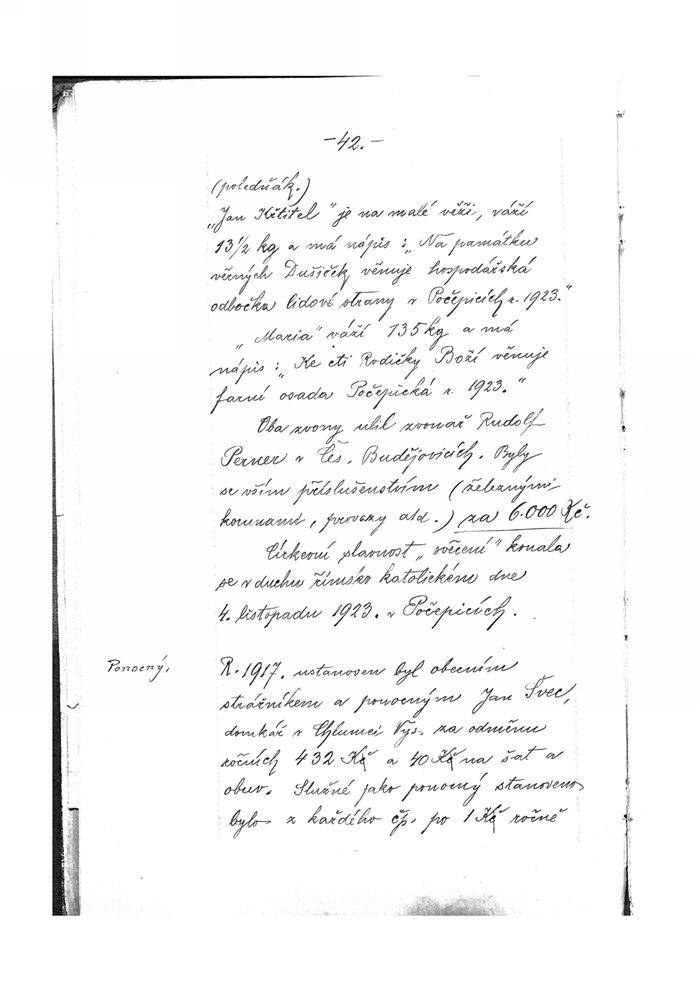 -42.-
(poledňák.)
„Jan Křtitel" je na malé věži, váží
13½ kg a má nápis: „Na památku
věrných Dušiček věnuje hospodářská
odbočka lidové strany v Počepicích r. 1923."
„Maria" váží 135 kg a má
nápis: „Ke cti Rodičky Boží věnuje
farní osada Počepická r. 1923."
Oba zvony ulil zvonař Rudolf
Perner v Čes. Budějovicích. Byly
se vším příslušenstvím (železnými
korunami, provazy atd.) za 6.000 Kč.
Církevní slavnost „svěcení" konala
se v duchu římsko katolickém dne
4. listopadu 1923. v Počepicích.
Ponocný.
R. 1917. ustanoven byl obecním
strážníkem a ponocným Jan Švec,
domkář v Chlumci Vys. za odměnu
ročních 432 Kč a 40 Kč na šat a
obuv. Služné jako ponocný stanoveno
bylo z každého čp. po 1 Kč ročně